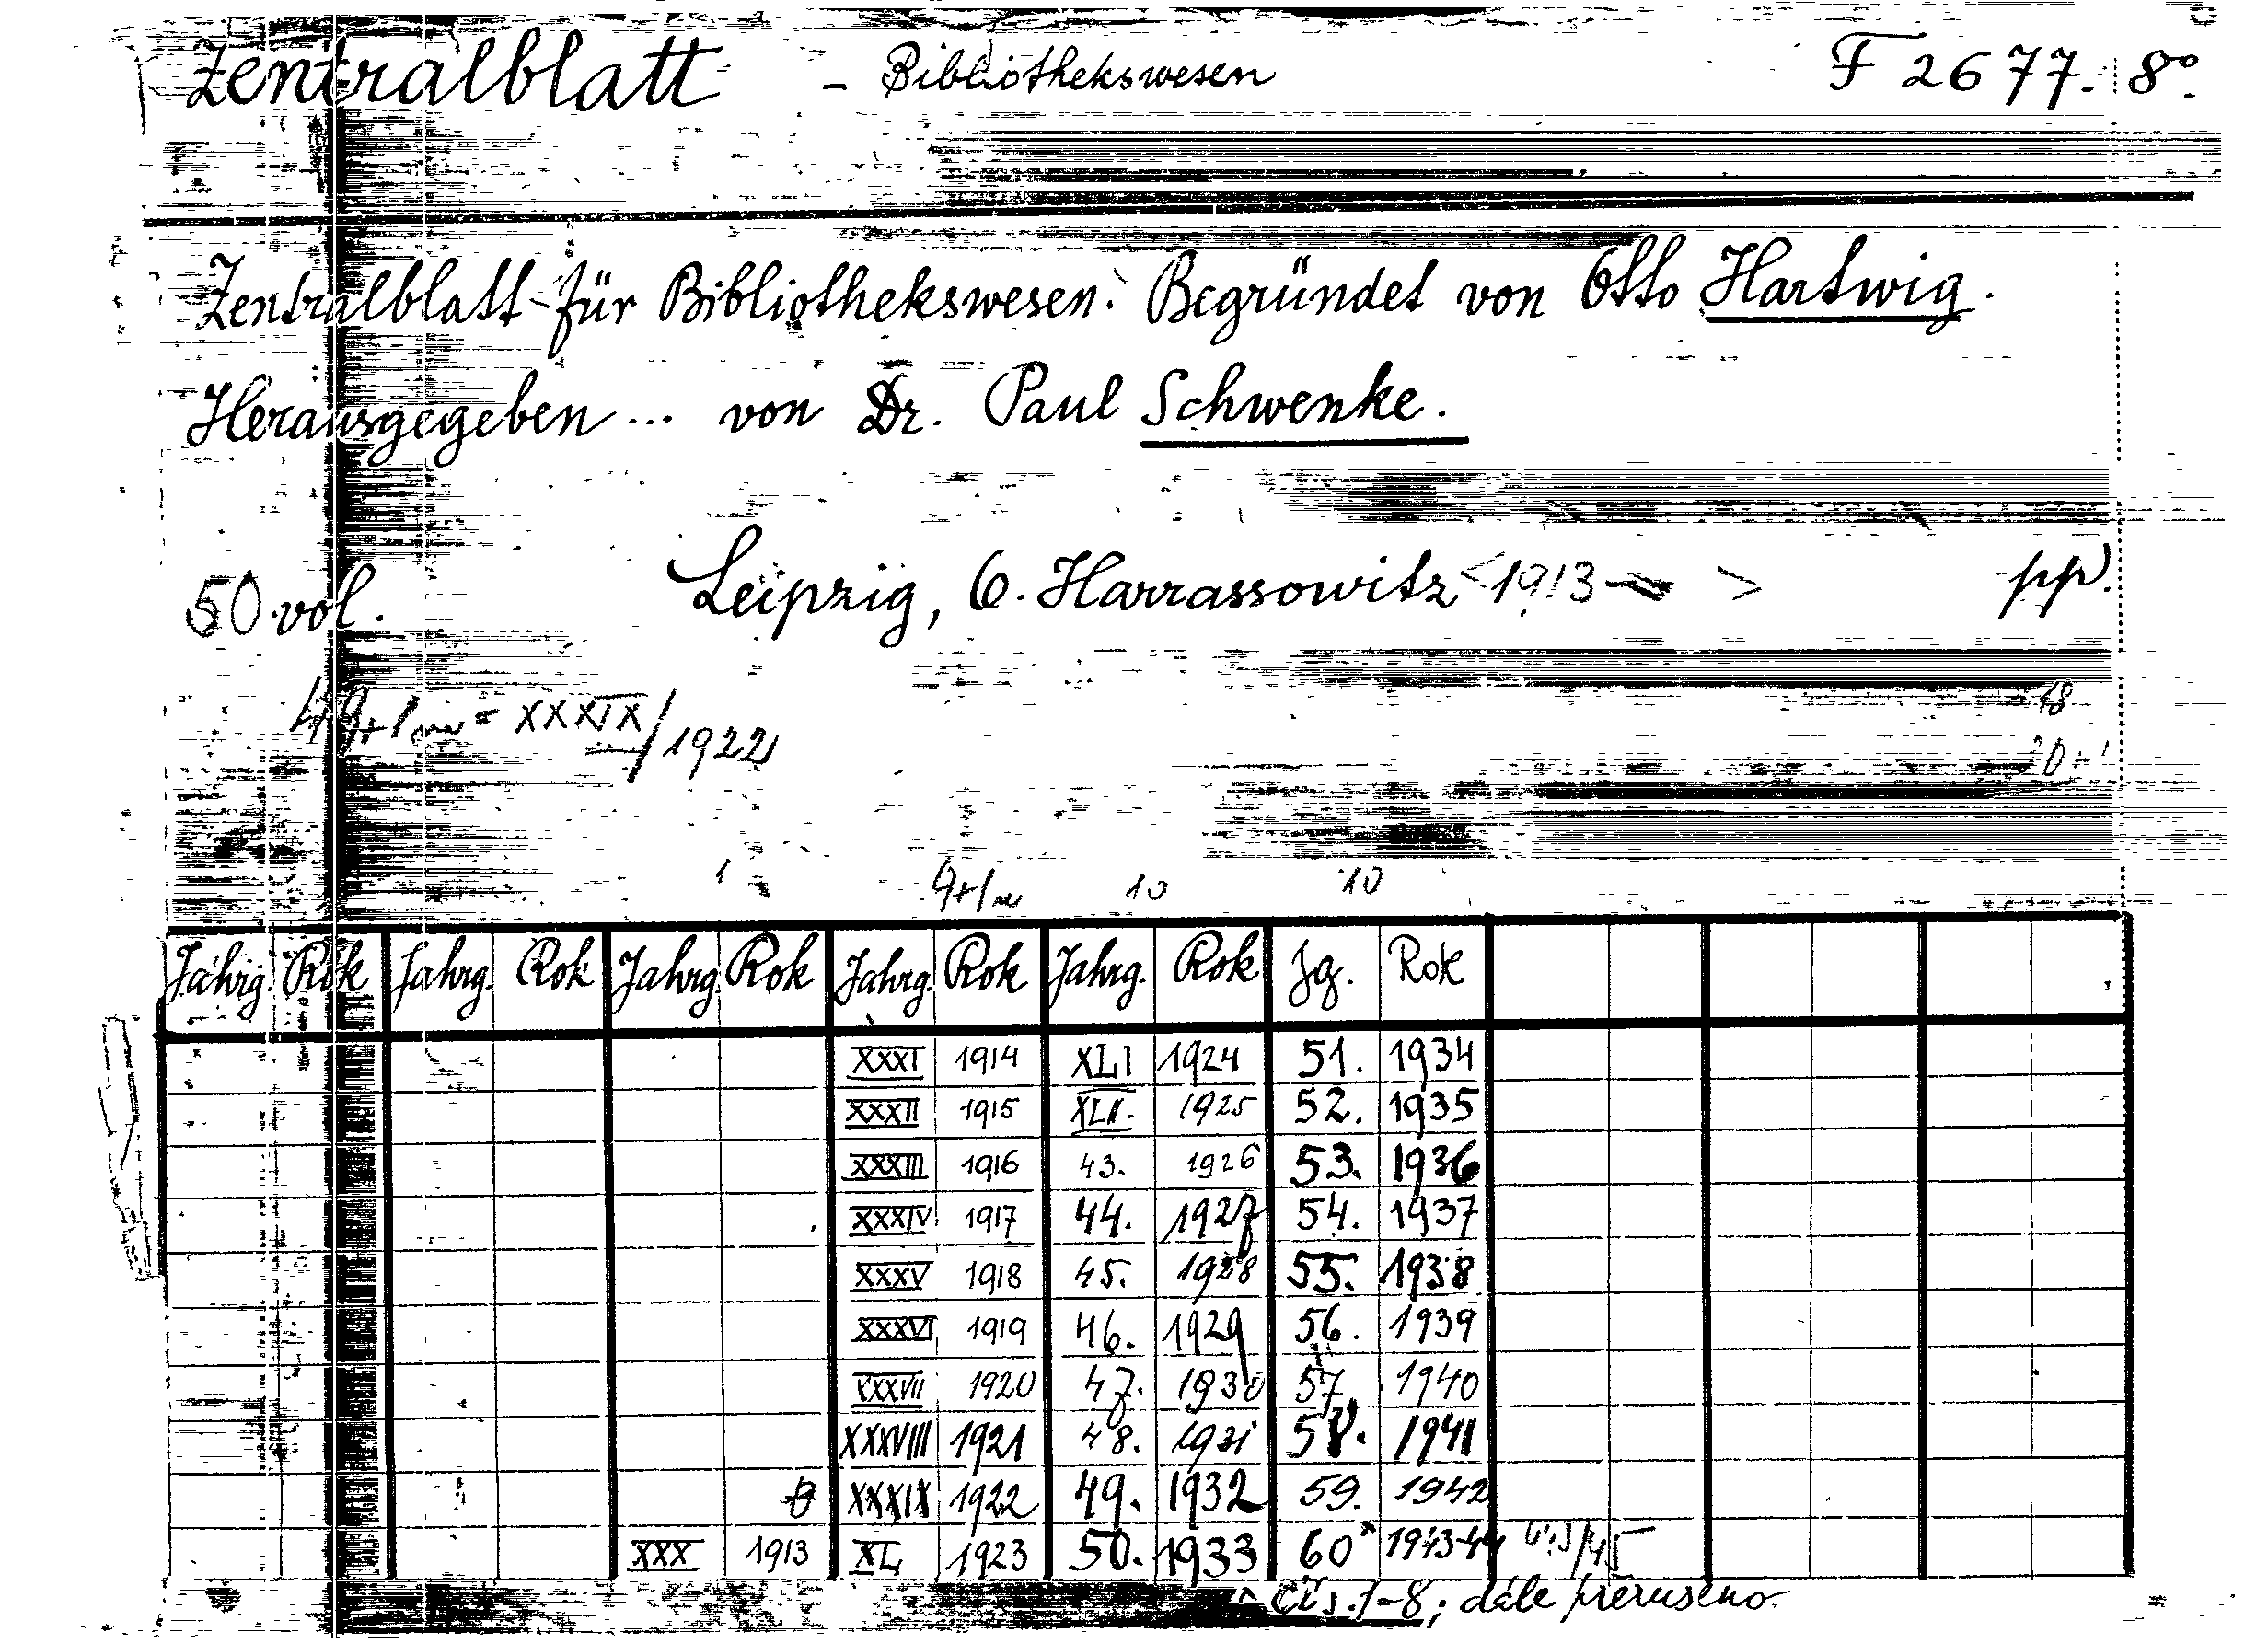 Zentralblatt - Bibliothekswesen F 2677. 8°.
Zentralblatt für Bibliothekswesen. Begründet von Otto Hartwig.
Herausgegeben ... von Dr. Paul Schwenke.
50 vol. Leipzig, O. Harrassowitz <1913 > pp.
= XXXIX/1922
18
1 9+1 10 10
Jahrg. Rok Jahrg. Rok Jahrg. Rok Jahrg. Rok Jahrg. Rok Jg. Rok
XXXI 1914 XLI 1924 51. 1934
XXXII 1915 XLII. 1925 52. 1935
XXXIII 1916 43. 1926 53. 1936
XXXIV 1917 44. 1927 54. 1937
XXXV 1918 45. 1928 55. 1938
XXXVI 1919 46. 1929 56. 1939
XXXVII 1920 47. 1930 57. 1940
XXXVIII 1921 48. 1931 58. 1941
XXXIX 1922 49. 1932 59. 1942
XXX 1913 XL 1923 50. 1933 60 1943-44
čís. 1-8; dále přerušeno.